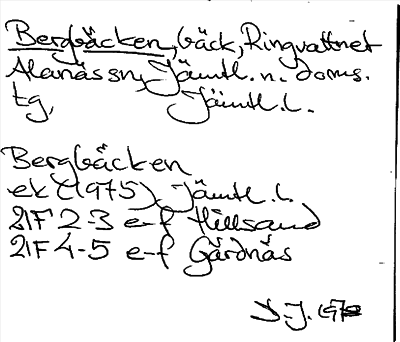 Bergbäcken, bäck, Ringvattnet
Alanäs sn, Jämtl. n. doms.
tg, Jämtl. l.
Bergbäcken
ek (1975) Jämtl. l.
21F 2-3 e-f Hillsand
21F 4-5 e-f Gärdnäs